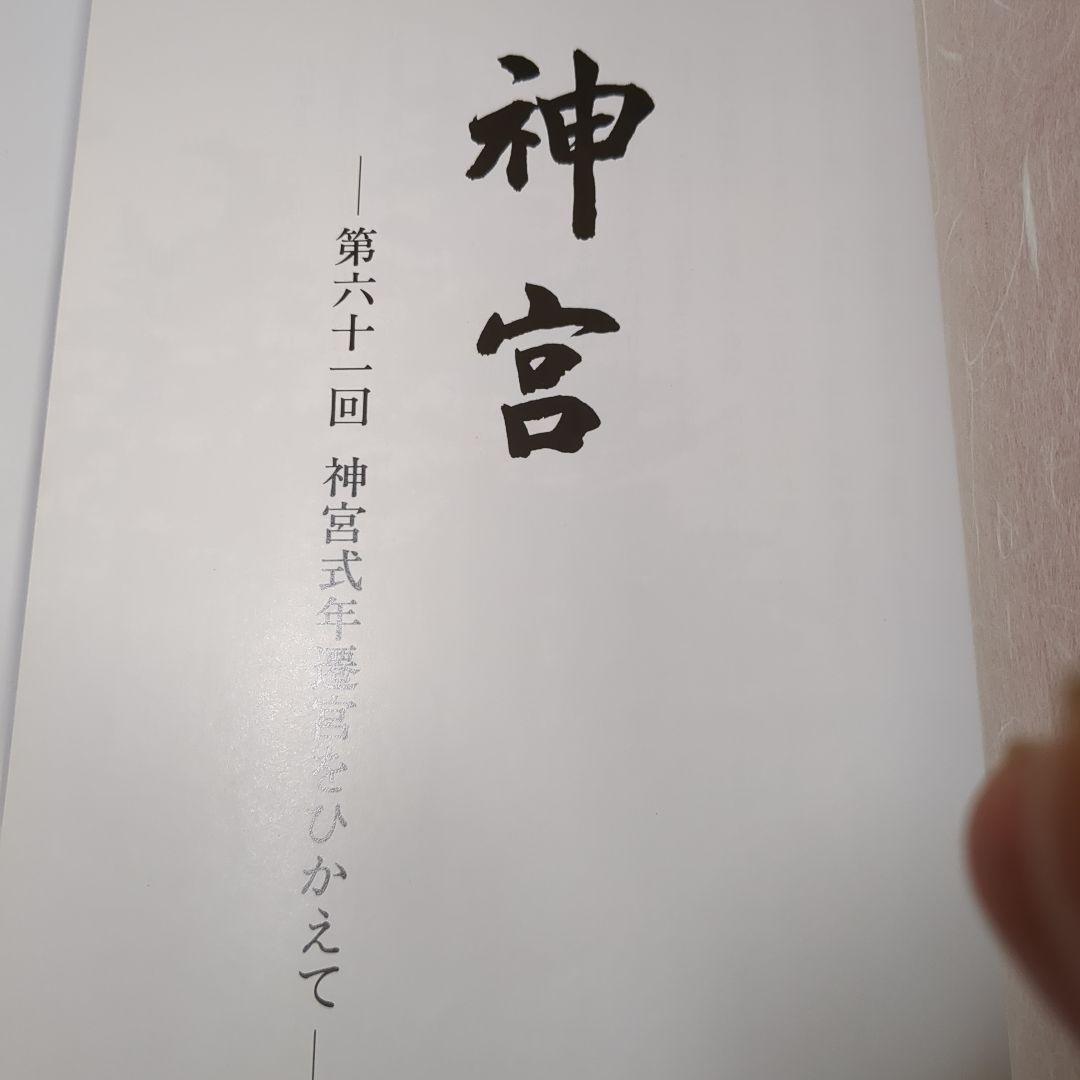 神宮
―第六十一回 神宮式年遷宮をひかえて―